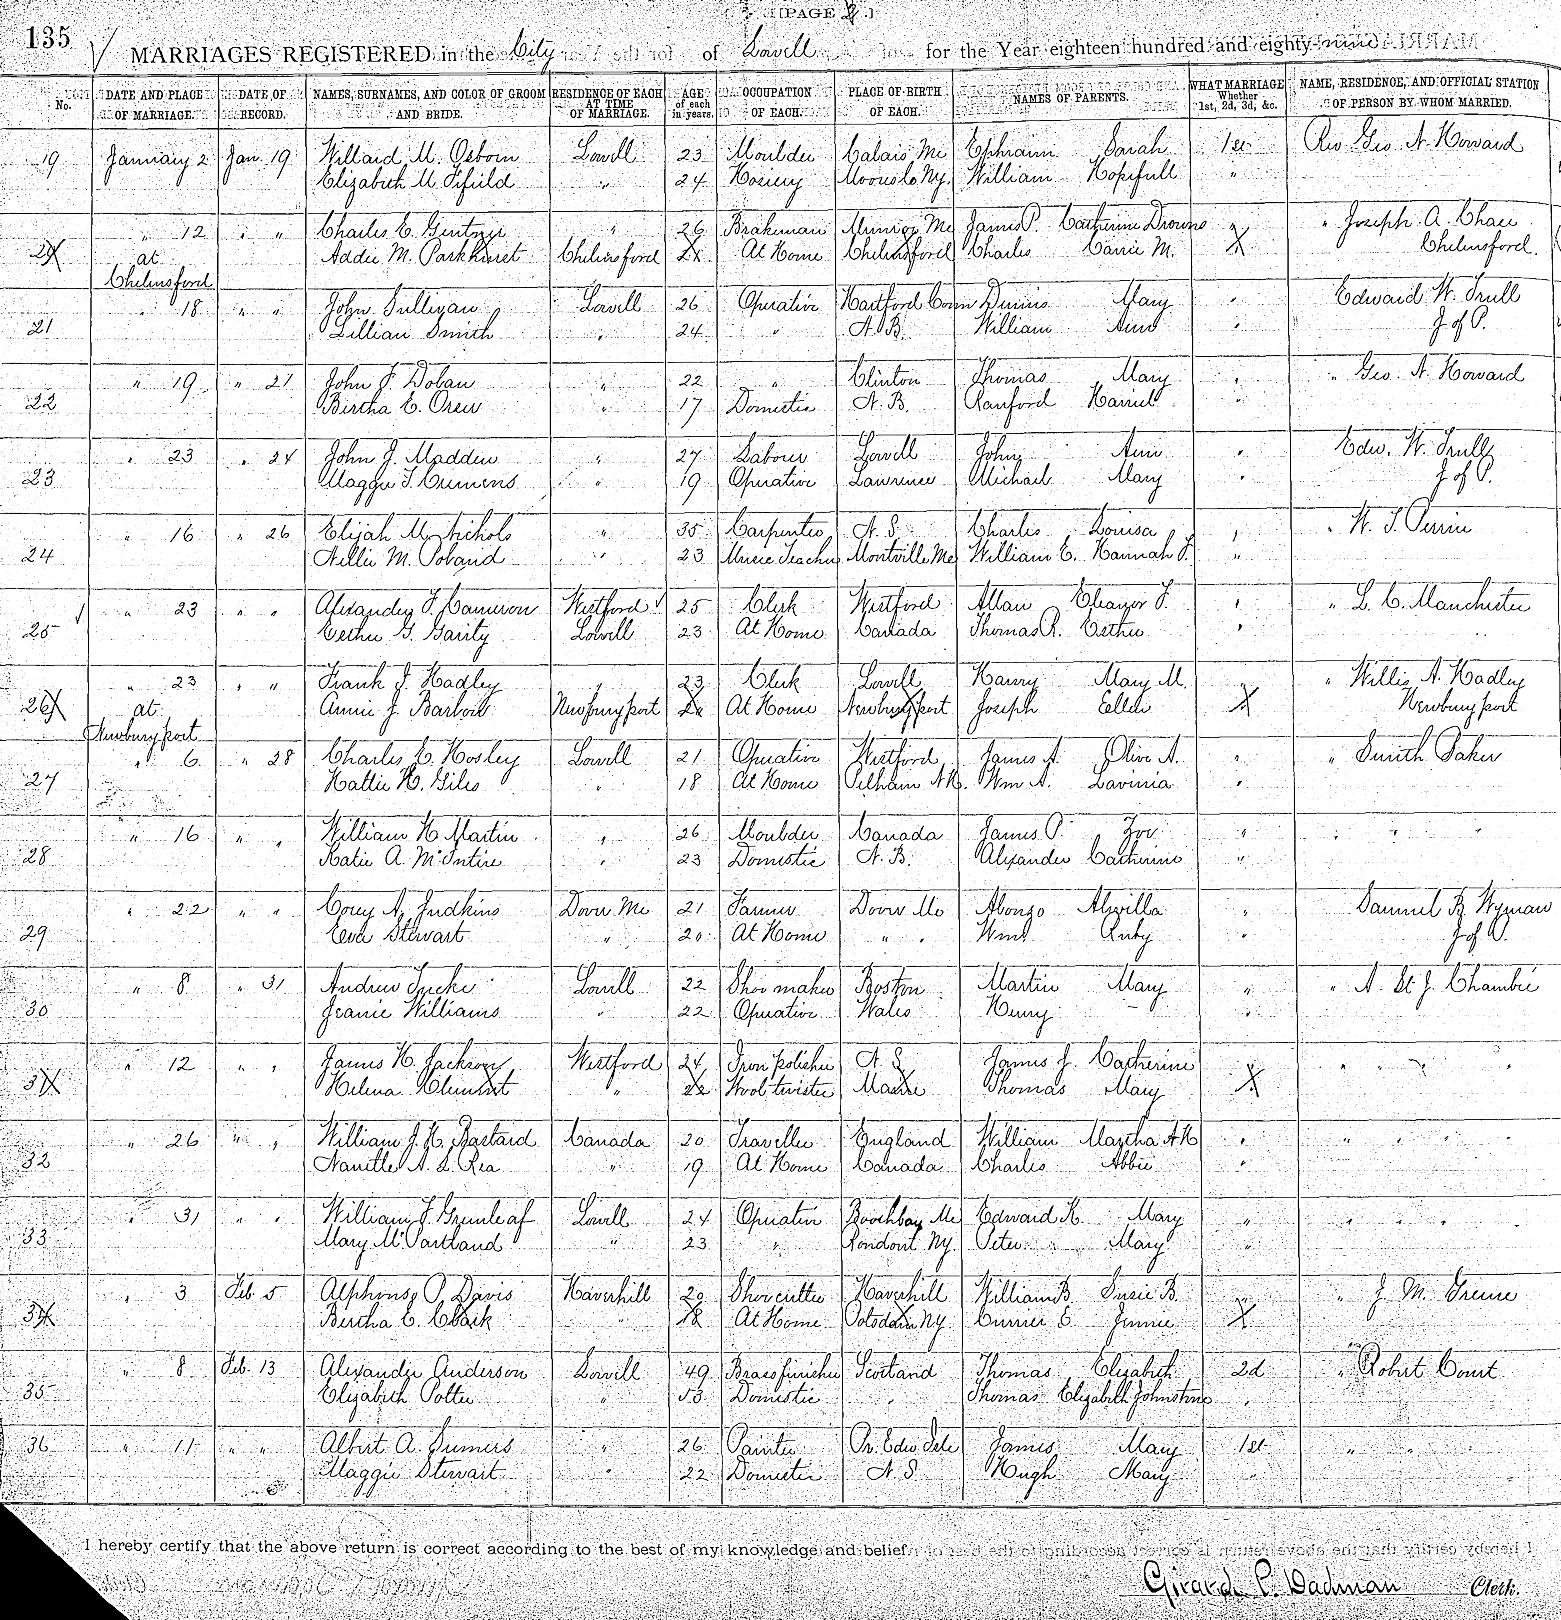 [PAGE 2.]
135
MARRIAGES REGISTERED in the City of Lowell for the Year eighteen hundred and eighty-nine
No. DATE AND PLACE OF MARRIAGE. DATE OF RECORD. NAMES, SURNAMES, AND COLOR OF GROOM AND BRIDE. RESIDENCE OF EACH AT TIME OF MARRIAGE. AGE of each in years. OCCUPATION OF EACH. PLACE OF BIRTH OF EACH. NAMES OF PARENTS. WHAT MARRIAGE Whether 1st, 2d, 3d, &c. NAME, RESIDENCE, AND OFFICIAL STATION OF PERSON BY WHOM MARRIED.
19 January 2 Jan. 19 Willard M. Osborn Lowell 23 Moulder Calais Me Ephraim Sarah 1st Rev Geo. N. Howard
Elizabeth M. Fifield " 24 Hosiery N.Y. William Hopefull "
20 " 12 " " Charles E. Gentner " 26 Brakeman Me James P. Catherine Drowns " " Joseph A. Chace
at Addie M. Parkhurst Chelmsford At Home Chelmsford Charles Carrie M. Chelmsford.
Chelmsford
21 " 18 " " John Sullivan Lowell 26 Operative Hartford Conn Dennis Mary " Edward W. Trull
Lillian Smith " 24 " N.B. William Ann " J of P.
22 " 19 " 21 John F. Dolan " 22 " Clinton Thomas Mary " " Geo. N. Howard
Bertha E. Drew " 17 Domestic N.B. Ranford Harriet "
23 " 23 " 24 John J. Madden " 27 Laborer Lowell John Ann " Edw. W. Trull
Maggie T. Cumens " 19 Operative Lawrence Michael Mary " J of P.
24 " 16 " 26 Elijah M. Nichols " 35 Carpenter N.S. Charles Louisa " " W. T. Perrin
Nellie M. Poland " 23 Music Teacher Montville Me William E. Hannah F. "
25 " 23 " " Alexander F. Cameron Westford 25 Clerk Westford Allan Eleanor F. " " L. C. Manchester
Esther G. Garity Lowell 23 At Home Canada Thomas R. Esther "
26 " 23 " " Frank J. Hadley " 23 Clerk Lowell Harry Mary M. " " Willis A. Hadley
at Annie J. Barlow Newburyport At Home Newburyport Joseph Ellen Newburyport
Newburyport
27 " 6 " 28 Charles E. Hosley Lowell 21 Operative Westford James A. Olive A. " " Smith Baker
Hattie H. Giles " 18 At Home Pelham N.H. Wm A. Lavinia "
28 " 16 " " William H. Martin " 26 Moulder Canada James P. Zoe " " " "
Katie A. McIntire " 23 Domestic N.B. Alexander Catherine "
29 " 22 " " Corey A. Judkins Dover Me 21 Farmer Dover Me Alonzo " Samuel B. Wyman
Eva Stewart " 20 At Home " " Wm. Ruby " J of P.
30 " 8 " 31 Andrew Lowell 22 Shoe maker Boston Martin Mary " " A. St. J. Chambré
Jeanie Williams " 22 Operative Wales Henry — "
31 " 12 " " James H. Jackson Westford 24 Iron polisher N.S. James J. Catherine " " " "
Helena Clement " 22 Wool twister Maine Thomas Mary
32 " 26 " " William J. H. Bastard Canada 20 Traveller England William Martha A H " " " "
A. L. Rea " 19 At Home Canada Charles Abbie "
33 " 31 " " William F. Greenleaf Lowell 24 Operative Boothbay Me Edward K. Mary " " " "
Mary McPartland " 23 " Rondout N.Y. Peter Mary "
34 " 3 Feb. 5 Alphonso P. Davis Haverhill 20 Shoe cutter Haverhill William B. Susie B. " " J. M. Greene
Bertha E. Clark " 18 At Home Potsdam N.Y. Currier E. Jennie
35 " 8 Feb. 13 Alexander Anderson Lowell 49 Brass finisher Scotland Thomas Elizabeth 2d " Robert Court
Elizabeth Potter " 53 Domestic " Thomas Elizabeth Johnstone "
36 " 11 " " Albert A. Sumers " 26 Painter Pr. Edw. Isle James Mary 1st " " "
Maggie Stewart " 22 Domestic N.S. Hugh Mary
I hereby certify that the above return is correct according to the best of my knowledge and belief.
Girard P. Dadman Clerk.